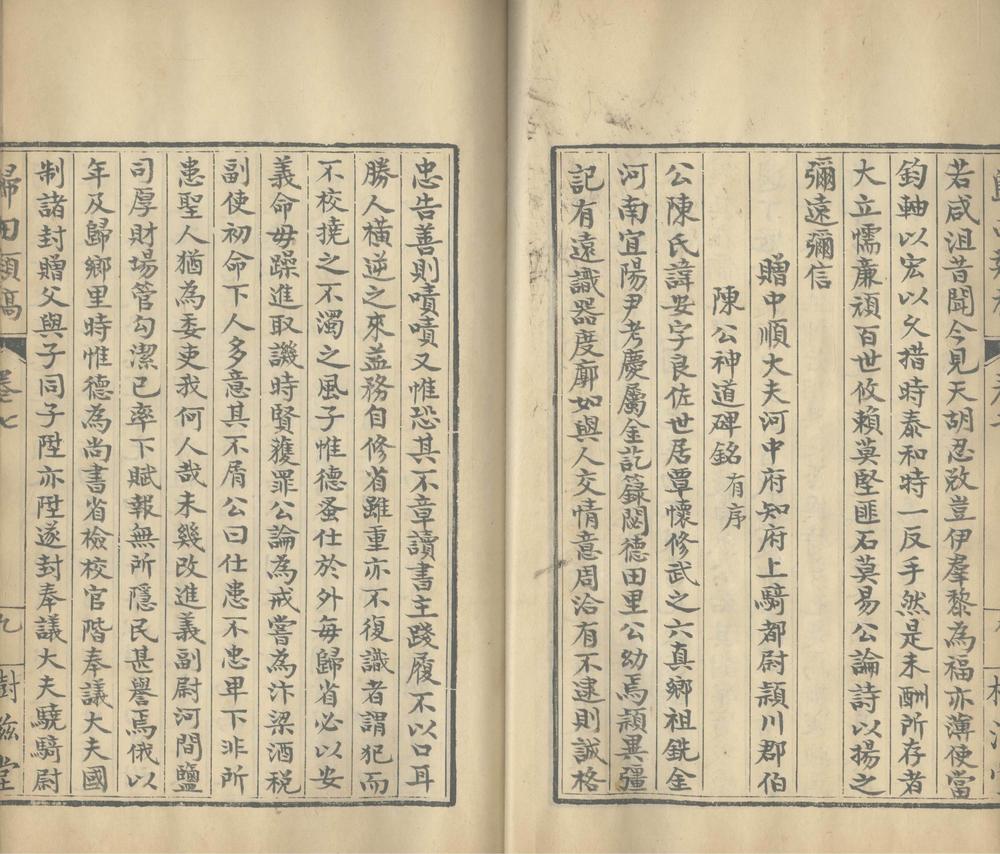 若咸沮昔聞今見天胡忍改豈伊羣黎為福亦薄使當
鈞軸以宏以久措時泰和時一反手然是未酬所存者
大立懦廉頑百世攸賴莫堅匪石莫易公論詩以揚之
彌遠彌信
贈中順大夫河中府知府上騎都尉潁川郡伯
陳公神道碑銘有序
公陳氏諱安字良佐世居覃懷修武之六真鄉祖銑金
河南宜陽尹考慶屬金訖籙閟德田里公幼焉穎異彊
記有遠識器度廓如與人交情意周洽有不逮則誠格
忠告善則嘖嘖又惟恐其不章讀書主踐履不以口耳
勝人橫逆之來益務自修省雖重亦不復識者謂犯而
不校撓之不濁之風子惟德蚤仕於外每歸省必以安
義命毋躁進取譏時賢蒦罪公論為戒嘗為汴梁酒稅
副使初命下人多意其不屑公曰仕患不忠卑下非所
患聖人猶為委吏我何人哉未幾改進義副尉河間鹽
司厚財場管勾潔已率下賦報無所隱民甚譽焉俄以
年及歸鄉里時惟德為尚書省檢校官階奉議大夫國
制諸封贈父與子同子陞亦陞遂封奉議大夫驍騎尉
歸田類稿 卷七 九 樹滋堂